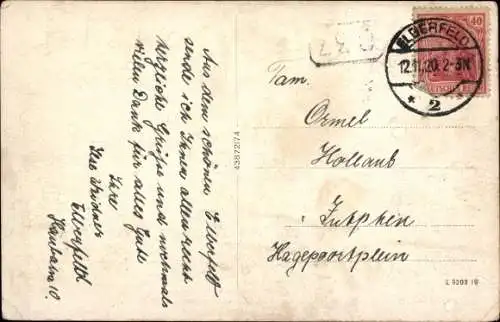 Aus dem schönen Elberfeld
sende ich Ihnen allen recht
herzliche Grüsse und nochmals
vielen Dank für alles Gute
Ihre
Elberfeld
10
4387/27/4
ELBERFELD
12.11.20. 2-3N
* 2
40
Fam.
Ormel
Holland
Zutphen
Hagepoortplein